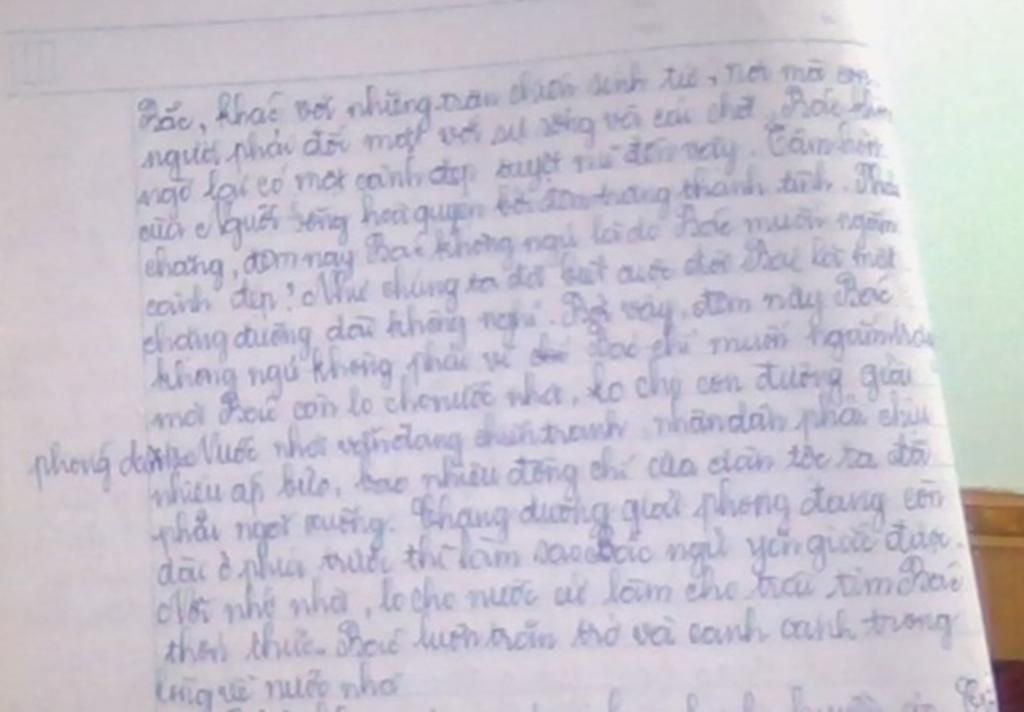 Bắc, khác với những trận chiến sinh tử, nơi mà con
người phải đối mặt với sự sống và cái chết. Bác không
ngờ lại có một cảnh đẹp tuyệt mĩ đến vậy. Tâm hồn
của Người sống hoà quyện với đêm trăng thanh tĩnh. Phải
chăng, đêm nay Bác không ngủ là do Bác muốn ngắm
cảnh đẹp? Như chúng ta đã biết cuộc đời Bác là một
chặng đường dài không nghỉ. Bởi vậy, đêm nay Bác
không ngủ không phải vì Bác chỉ muốn ngắm
mà Bác còn lo cho nước nhà, lo cho con đường giải
phóng dân tộc. Nước nhà vẫn đang chiến tranh, nhân dân phải chịu
nhiều áp bức, bao nhiêu đồng chí của dân tộc ta đã
phải ngã xuống. Chặng đường giải phóng đang còn
dài ở phía trước thì làm sao Bác ngủ yên giấc được.
Nỗi nhớ nhà, lo cho nước cứ làm cho trái tim Bác
thổn thức. Bác luôn trăn trở và canh cánh trong
lòng về nước nhà